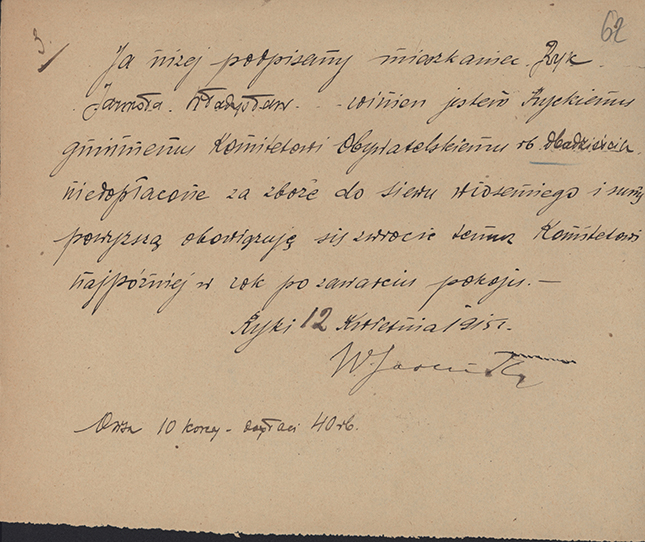 3.
62
Ja niżej podpisany mieszkaniec Ryk
Władysław winien jestem Ryckiemu
gminnemu Komitetowi Obywatelskiemu rb.
niedopłacone za zboże do siewu wiosennego i sumę
powyższą obowiązuję się zwrócić temuż Komitetowi
najpóźniej w rok po zawarciu pokoju. —
Ryki 12 Kwietnia 1915 r.
W.
10 korcy - 40 rb.